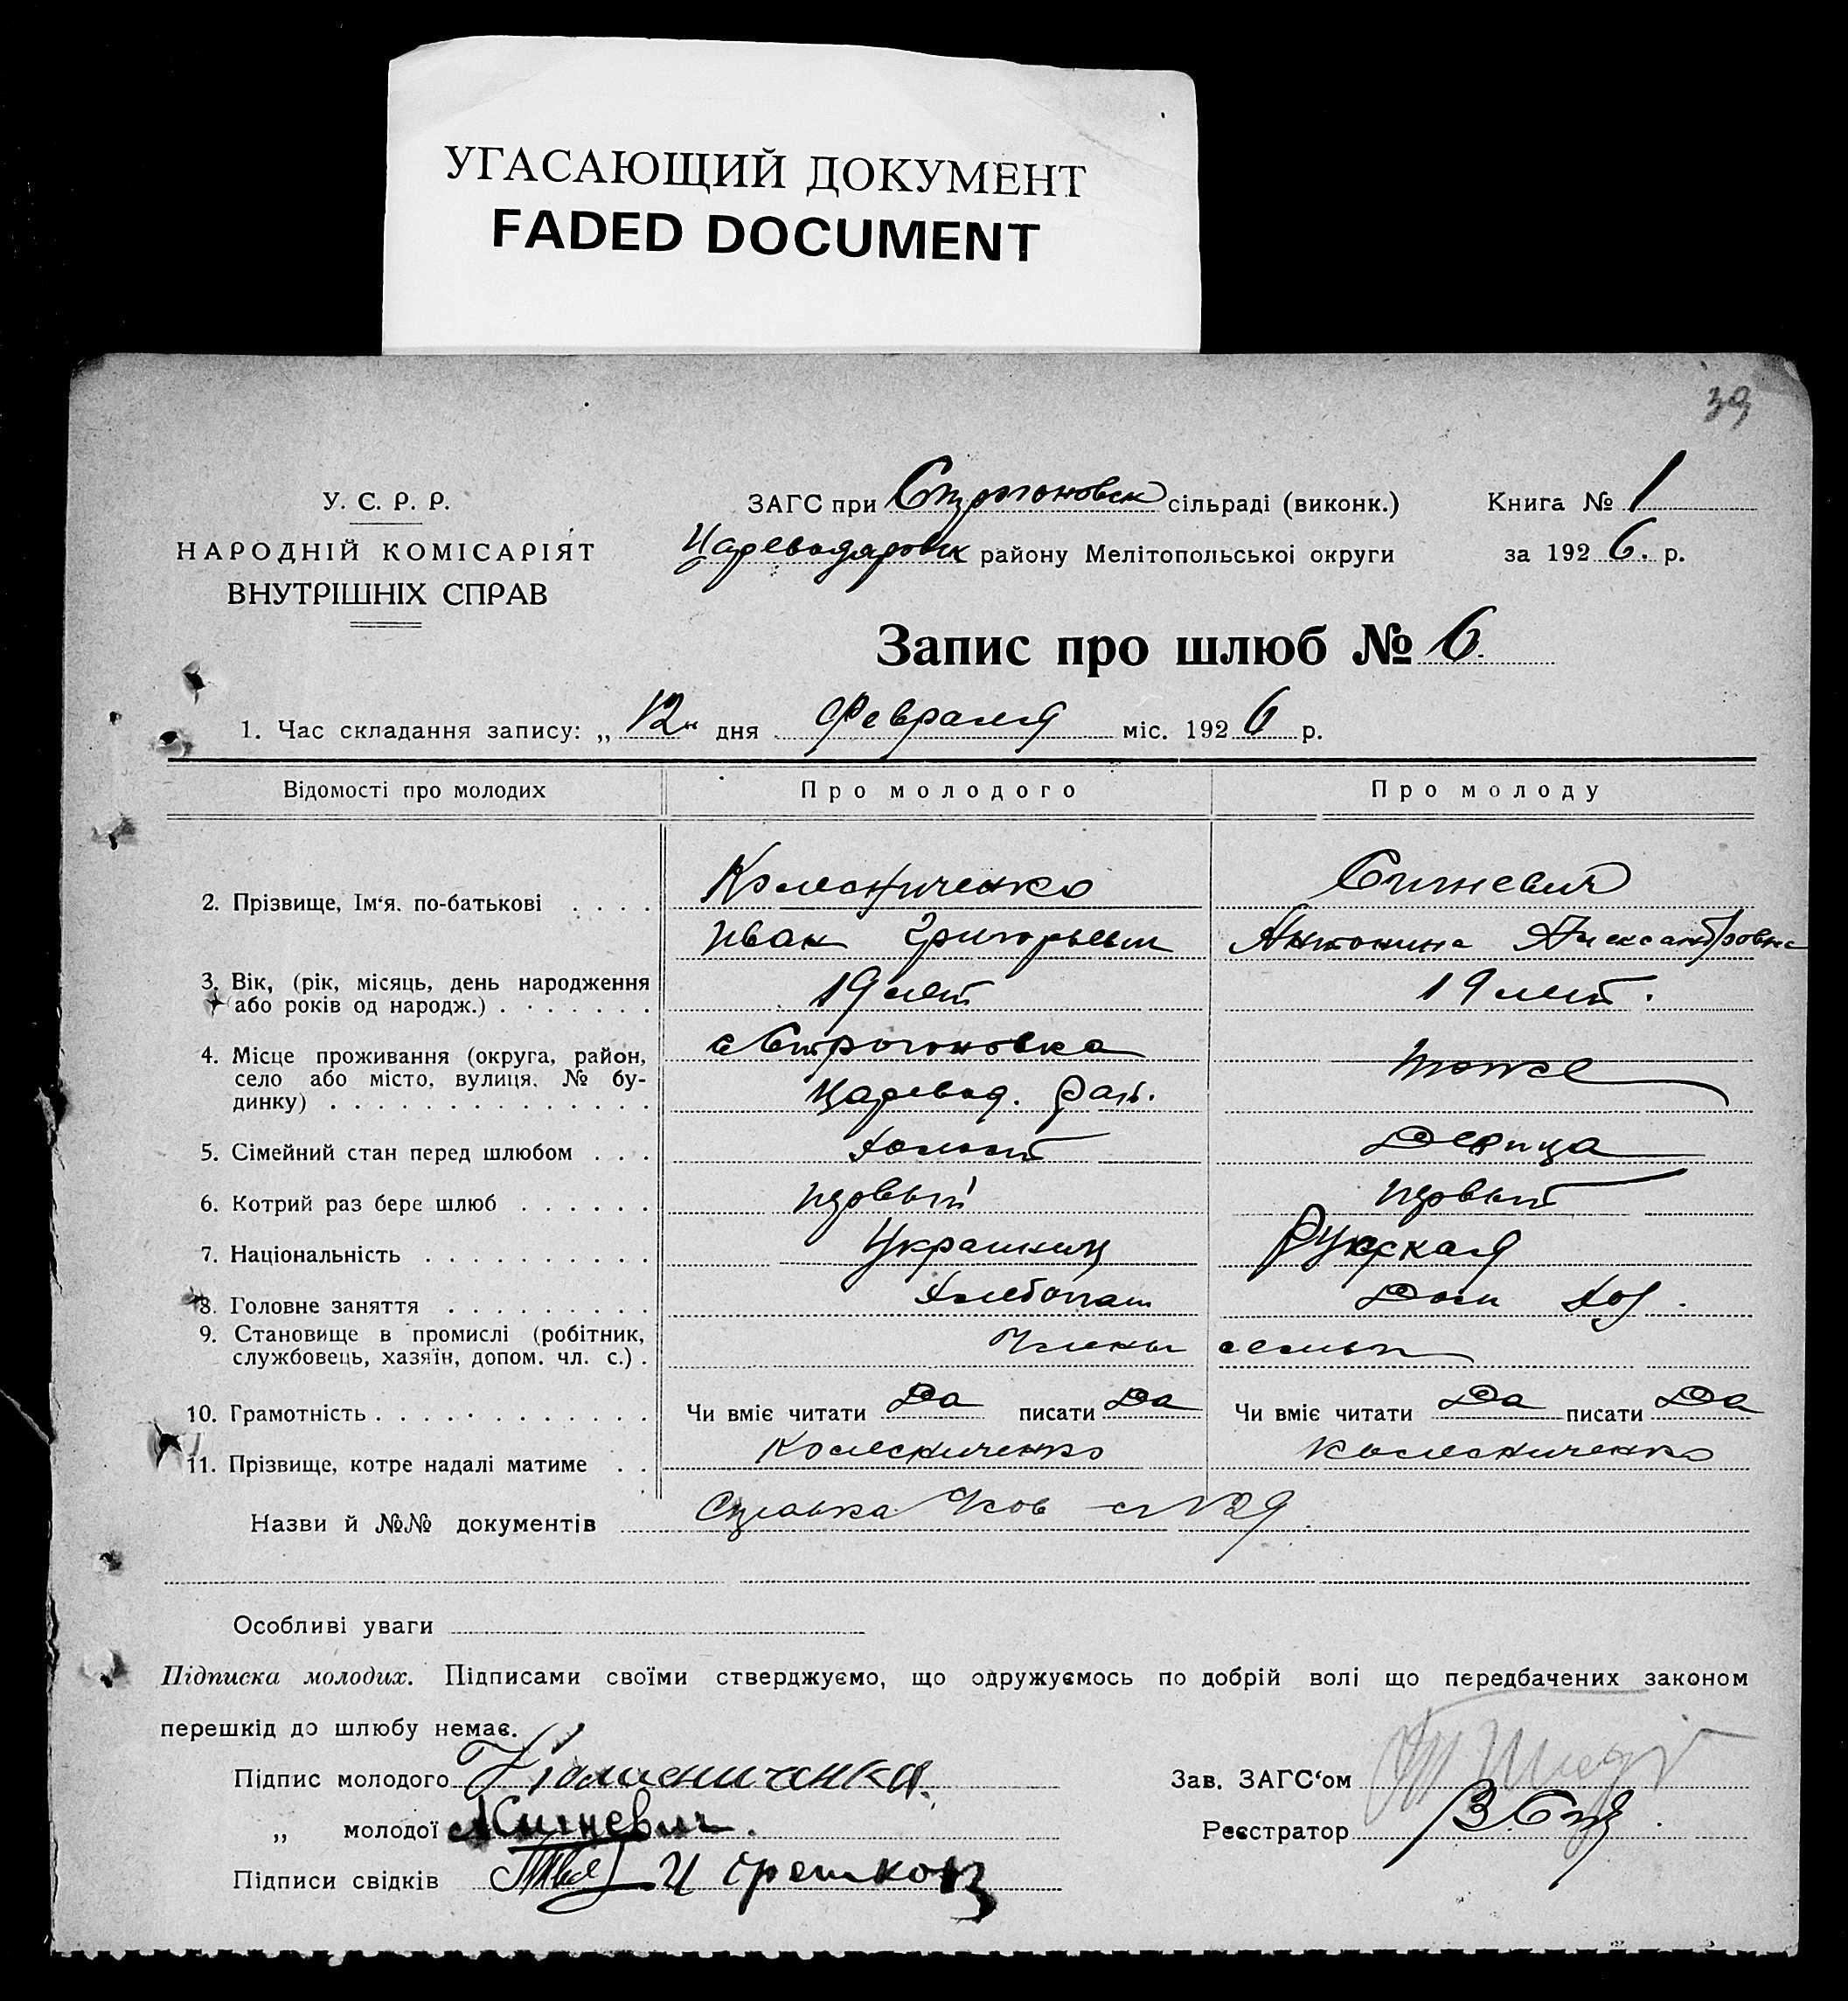 УГАСАЮЩИЙ ДОКУМЕНТ
FADED DOCUMENT
39
У. С. Р. Р.
НАРОДНІЙ КОМІСАРІЯТ
ВНУТРІШНІХ СПРАВ
ЗАГС при Строгоновск сільраді (виконк.)
Цареводаровск району Мелітопольської округи
Книга № 1
за 1926. р.
Запис про шлюб № 6.
1. Час складання запису: „ 12 " дня Февраля міс. 1926 р.
Відомості про молодих Про молодого Про молоду
2. Прізвище, Ім'я, по-батькові . . . . Колесниченко
Иван Григорьевич Антонина Александровна
3. Вік, (рік, місяць, день народження
або років од народж.) . . . . . . . 19 лет 19 лет.
4. Місце проживання (округа, район,
село або місто, вулиця, № бу-
динку) . . . . . . . . . . . . . . с Строгоновка
Царевод. рай. тоже
5. Сімейний стан перед шлюбом . . . холост Девица
6. Котрий раз бере шлюб . . . . . . первый первый
7. Національність . . . . . . . . . . Украинец Русская
8. Головне заняття . . . . . . . . . Хлебопаш Дом хоз.
9. Становище в промислі (робітник,
службовець, хазяїн, допом. чл. с.) . Члены семьи
10. Грамотність . . . . . . . . . . . . . Чи вміє читати Да писати Да Чи вміє читати Да писати Да
11. Прізвище, котре надалі матиме . . Колесниченко Колесниченко
Назви й №№ документів Справка
Особливі уваги
Підписка молодих. Підписами своїми стверджуємо, що одружуємось по добрій волі що передбачених законом
перешкід до шлюбу немає.
Підпис молодого Колесниченка.
„ молодої
Підписи свідків
Зав. ЗАГС'ом
Реєстратор